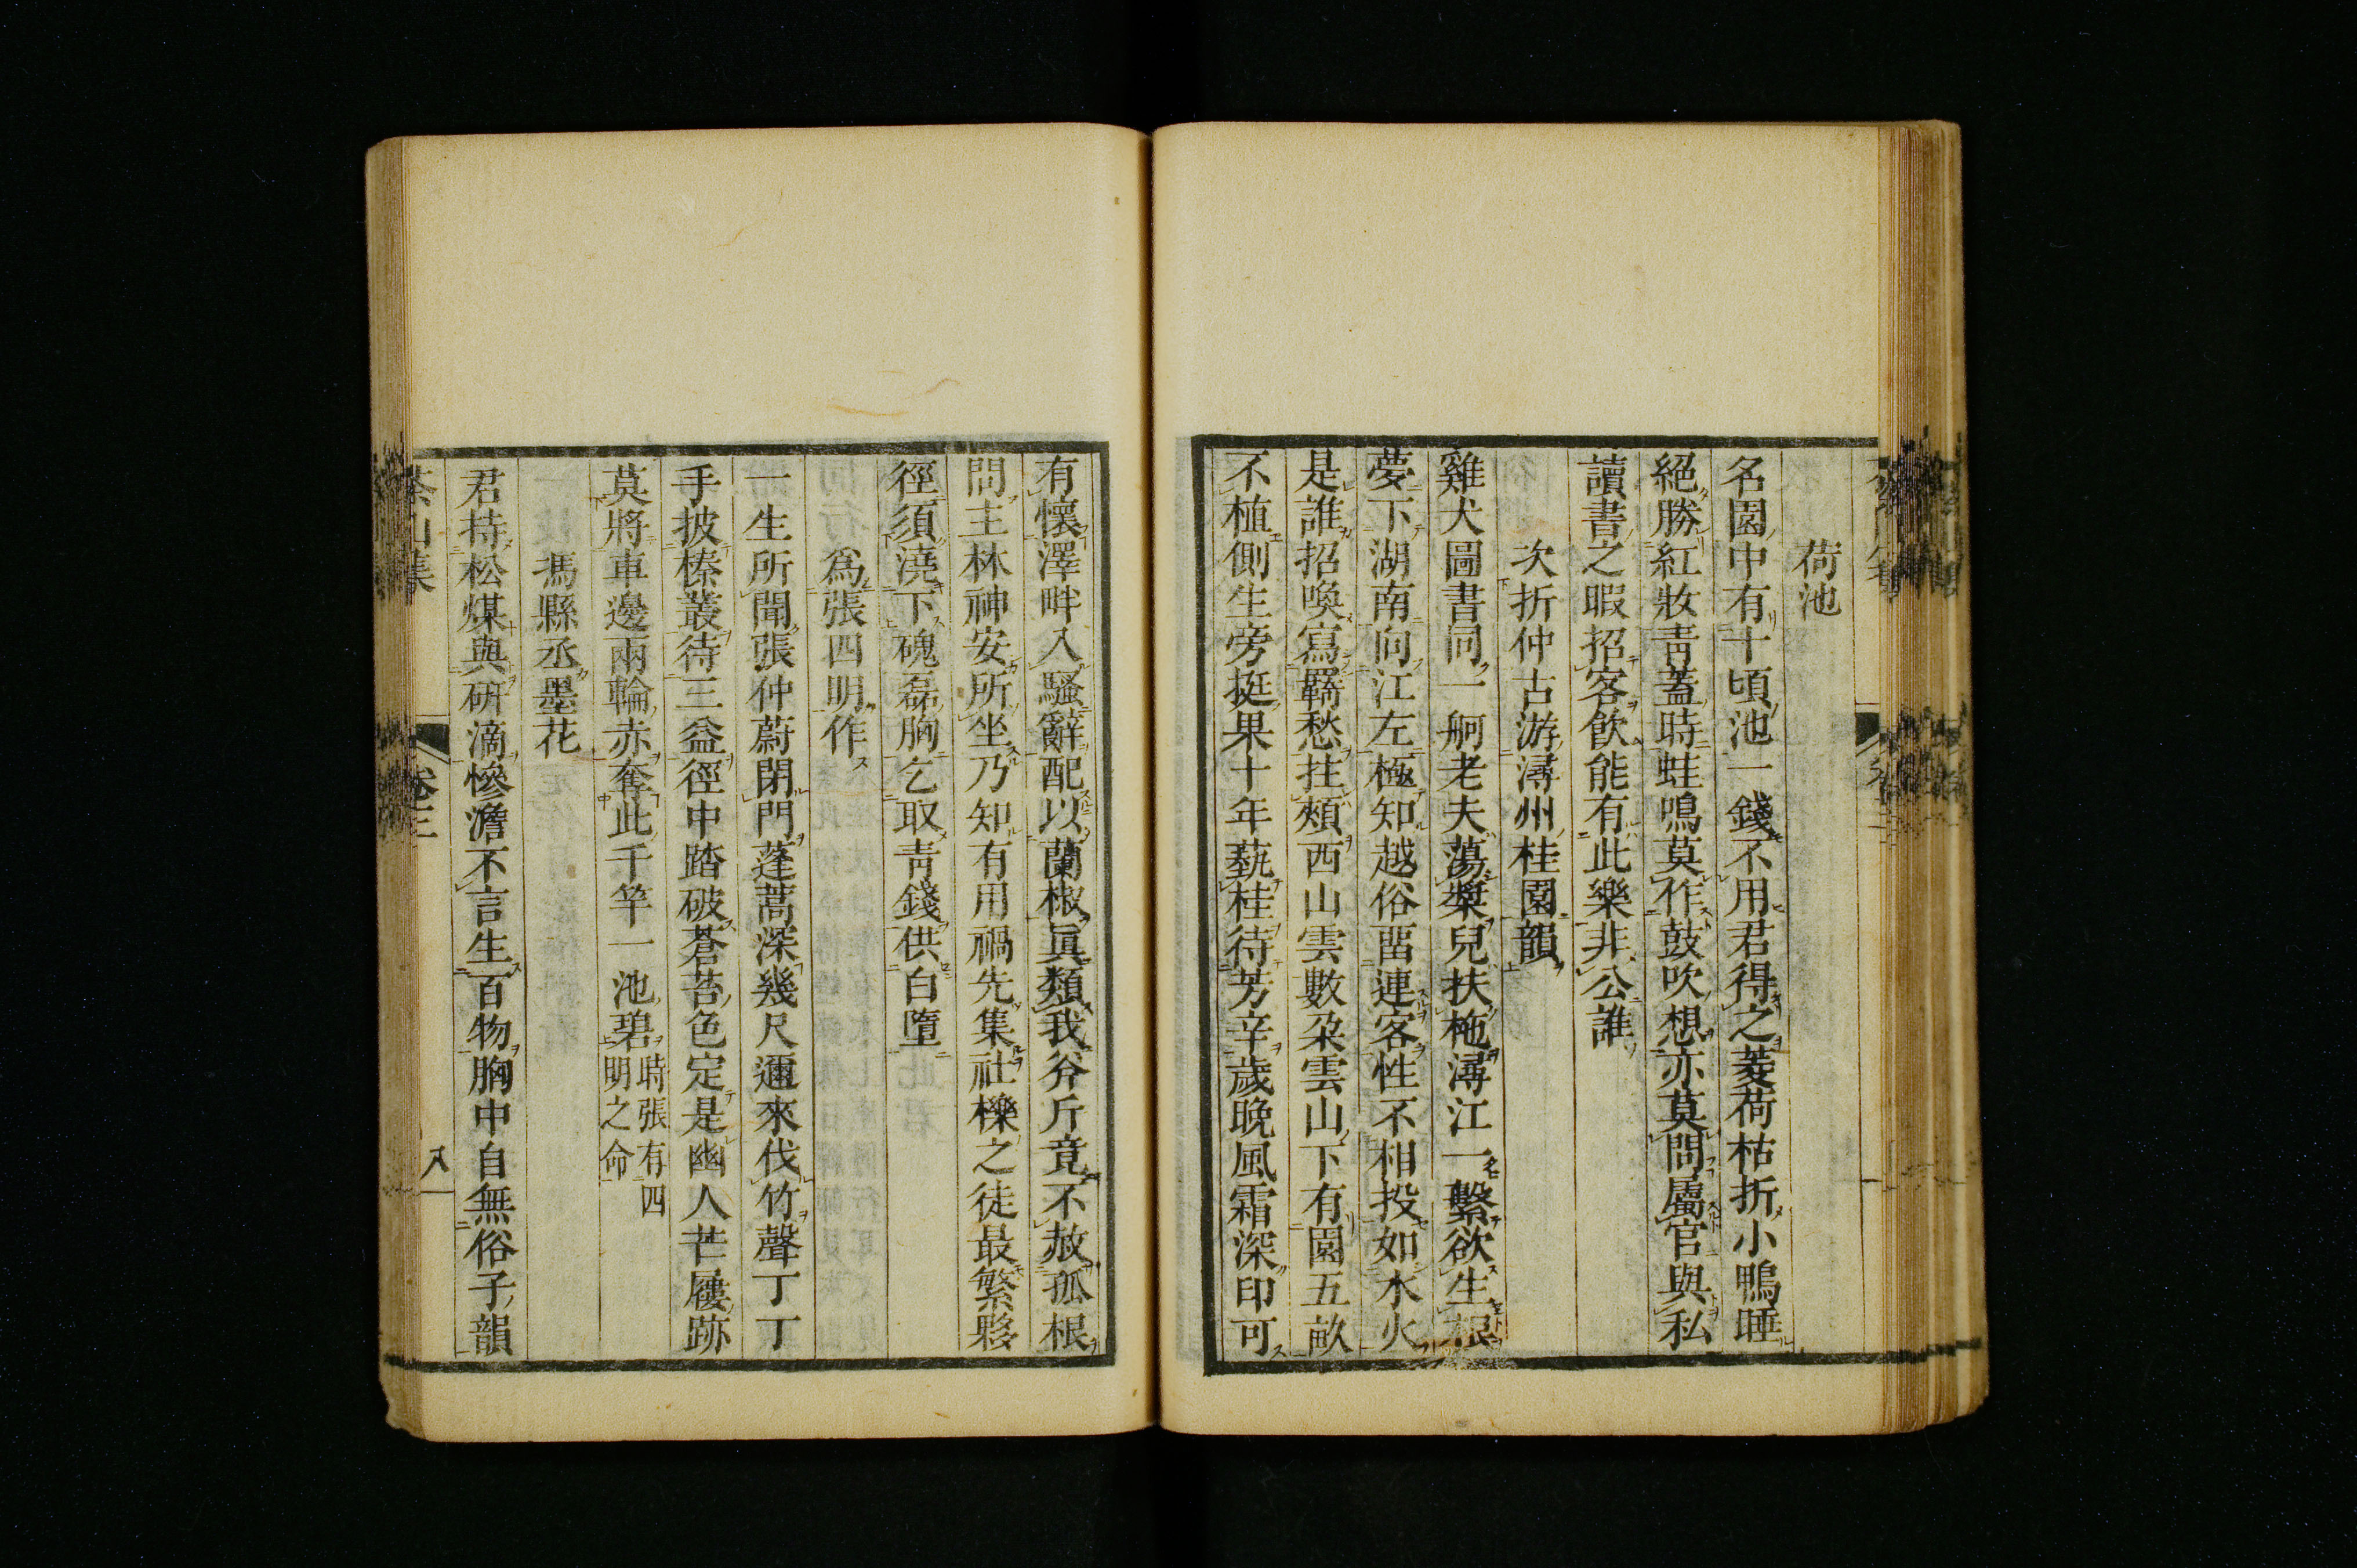 荷池
名園中有十頃池一錢不用君得之菱荷枯折小鴨睡
絕勝紅妝靑蓋時蛙鳴莫作鼓吹想亦莫問屬官與私
讀書之暇招客飮能有此樂非公誰
次折仲古游潯州桂園韻
雞犬圖書同一舸老夫蕩槳兒扶柂潯江一繫欲生根
夢下湖南向江左極知越俗畱連客性不相投如水火
是誰招喚寫羇愁拄頰西山雲數朶雲山下有園五畝
不植側生旁挺果十年蓺桂待芳辛歲晚風霜深印可
有懷澤畔入騷辭配以蘭椒眞類我斧斤竟不赦孤根
問主林神安所坐乃知有用禍先集社櫟之徒最繁夥
徑須澆下磈磊胸乞取靑錢供白墮
爲張四明作
一生所聞張仲蔚閉門蓬蒿深幾尺邇來伐竹聲丁丁
手披榛叢待三益徑中踏破蒼苔色定是幽人芒屨跡
莫將車邊兩輪赤奪此千竿一池碧時張有四明之命
馮縣丞墨花
君持松煤與硏滴慘澹不言生百物胸中自無俗子韻
茶山集 卷三 八